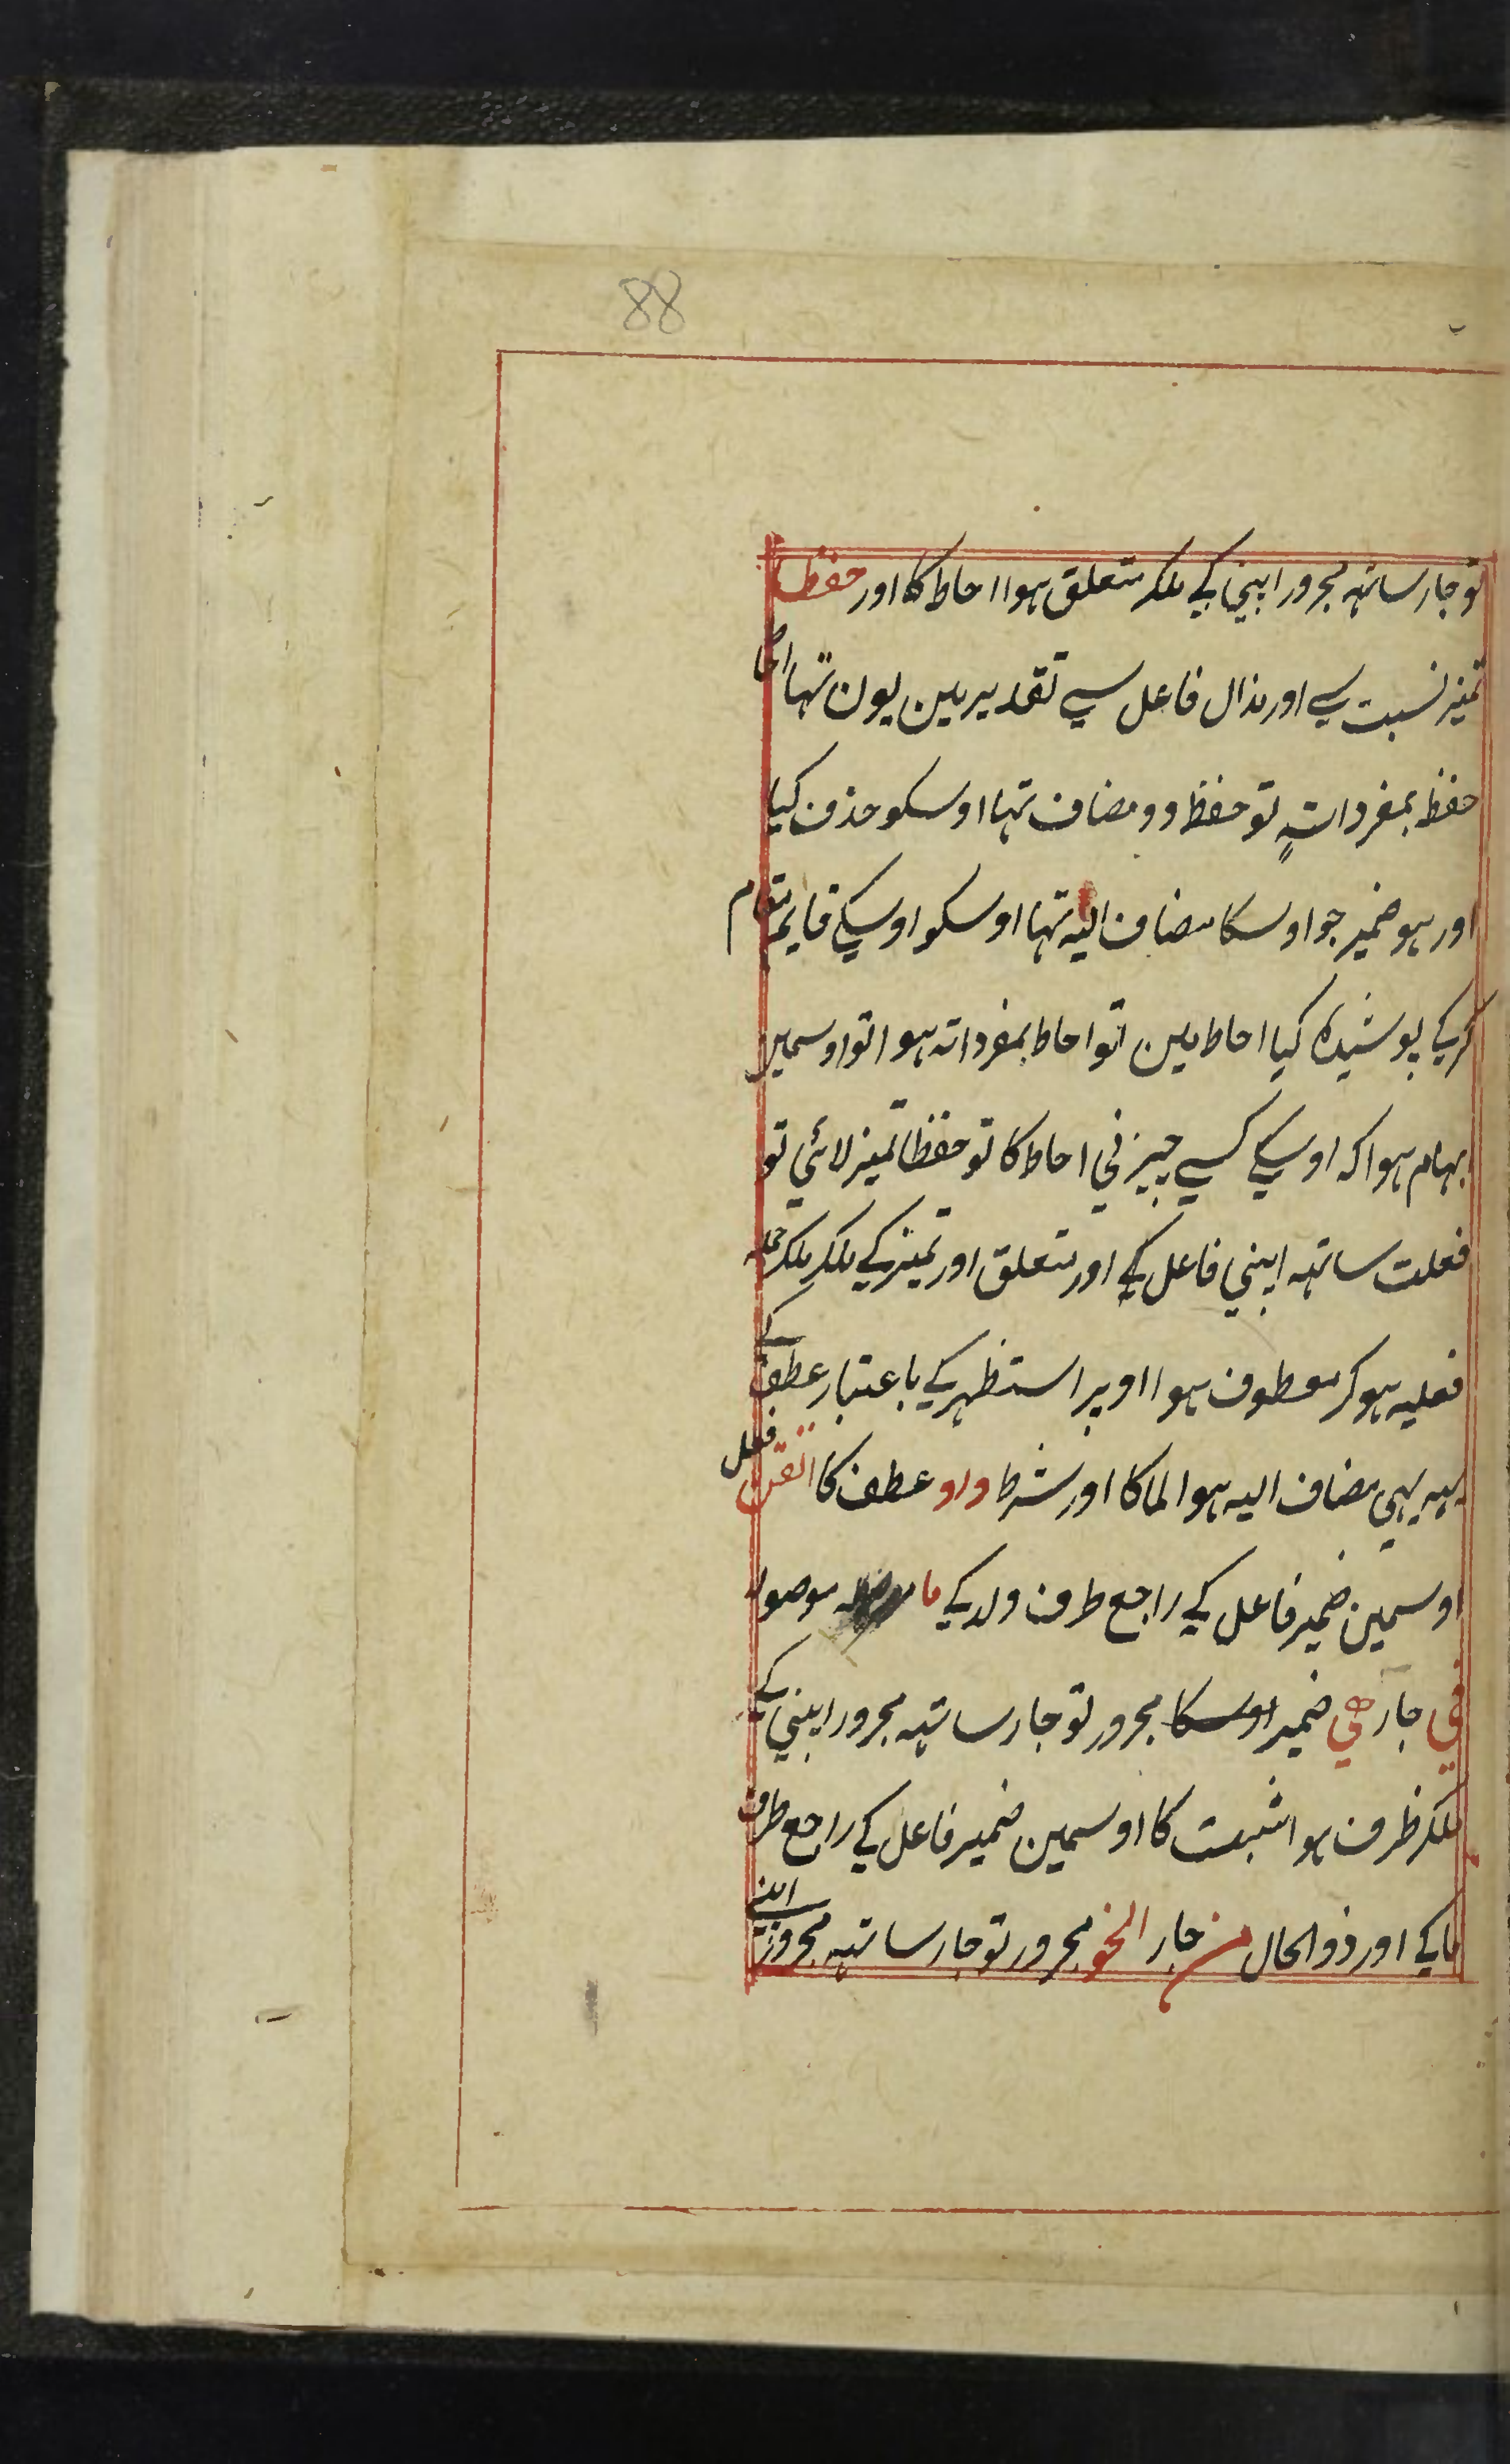 88
تو جار ساتہہ مجرور اپنی کے ملکر متعلق ہوا احاط کا اور حفظا
تمیز نسبت سے اور مذال فاعل سے تقدیر مین یون تہا احاط
حفظ بمفرداتہٖ تو حفظ وو مضاف تہا اوسکو حذف کیا
اور ہو ضمیر جو اوسکا مضاف الیہ تہا اوسکو اوسکے قایم مقام
کرکے پوشیدہ کیا احاط مین تو احاط بمفرداتہ ہوا تو اوسمین
بہام ہوا کہ اوسکے کسے چیز نی احاط کا تو حفظا تمیز لائی تو
فعلت ساتہہ اپنی فاعل کے اور متعلق اور تمیز کے ملکر ملکر جملہ
فعلیہ ہوکر معطوف ہوا اوپر استظہر کے باعتبار عطف کے
یہہ بہی مضاف الیہ ہوا لما کا اور شرط واو عطف کا اتقن فعل
اوسمین ضمیر فاعل کے راجع طرف ولد کے ما موصولہ
فی جار ھی ضمیر اوسکا مجرور تو جار ساتہہ مجرور اپنی کے
ملکر ظرف ہوا ثبت کا اوسمین ضمیر فاعل کے راجع طرف
ما کے اور ذو الحال من جار النحو مجرور تو جار ساتہہ مجرور اپنے